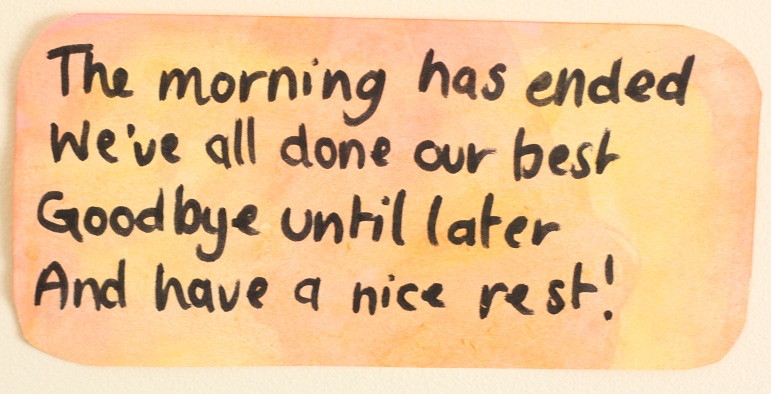 The morning has ended
We've all done our best
Goodbye until later
And have a nice rest!